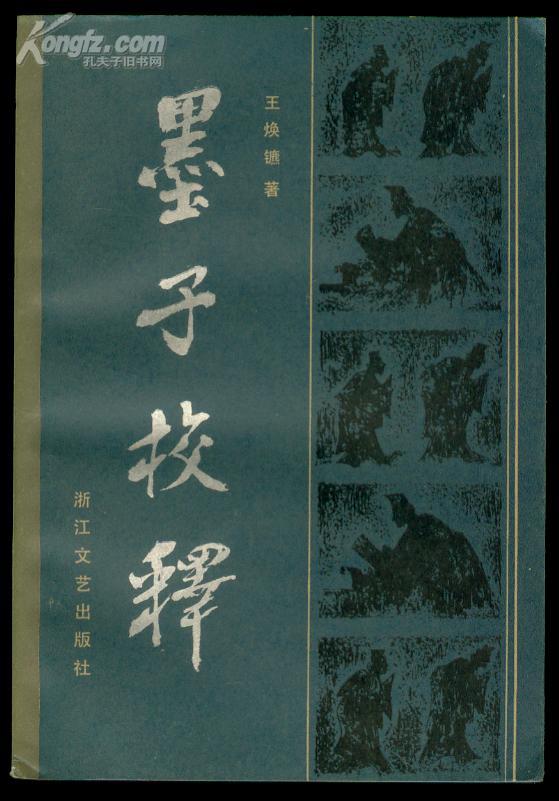 Kongfz.com
孔夫子旧书网
王焕镳著
墨子校释
浙江文艺出版社